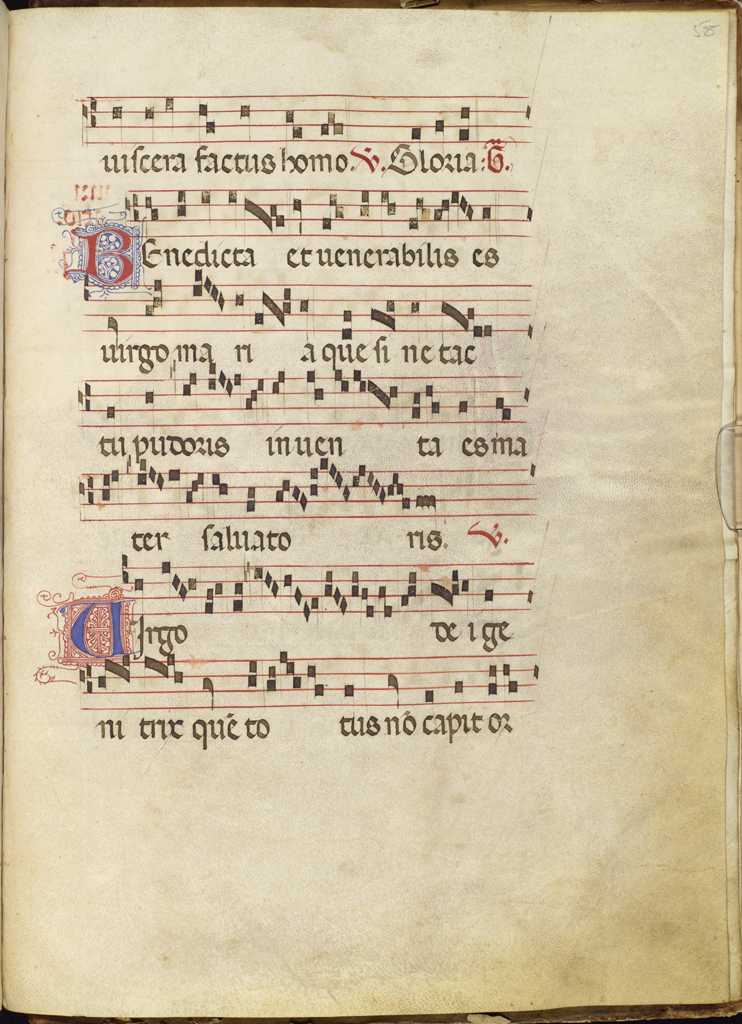 58
uiscera factus homo. V. Gloria: G.
Benedicta et uenerabilis es
uirgo ma ri a que si ne tac
tu pudoris inuen ta es ma
ter saluato ris. V.
Uirgo de i ge
ni trix quē to tus nō capit or